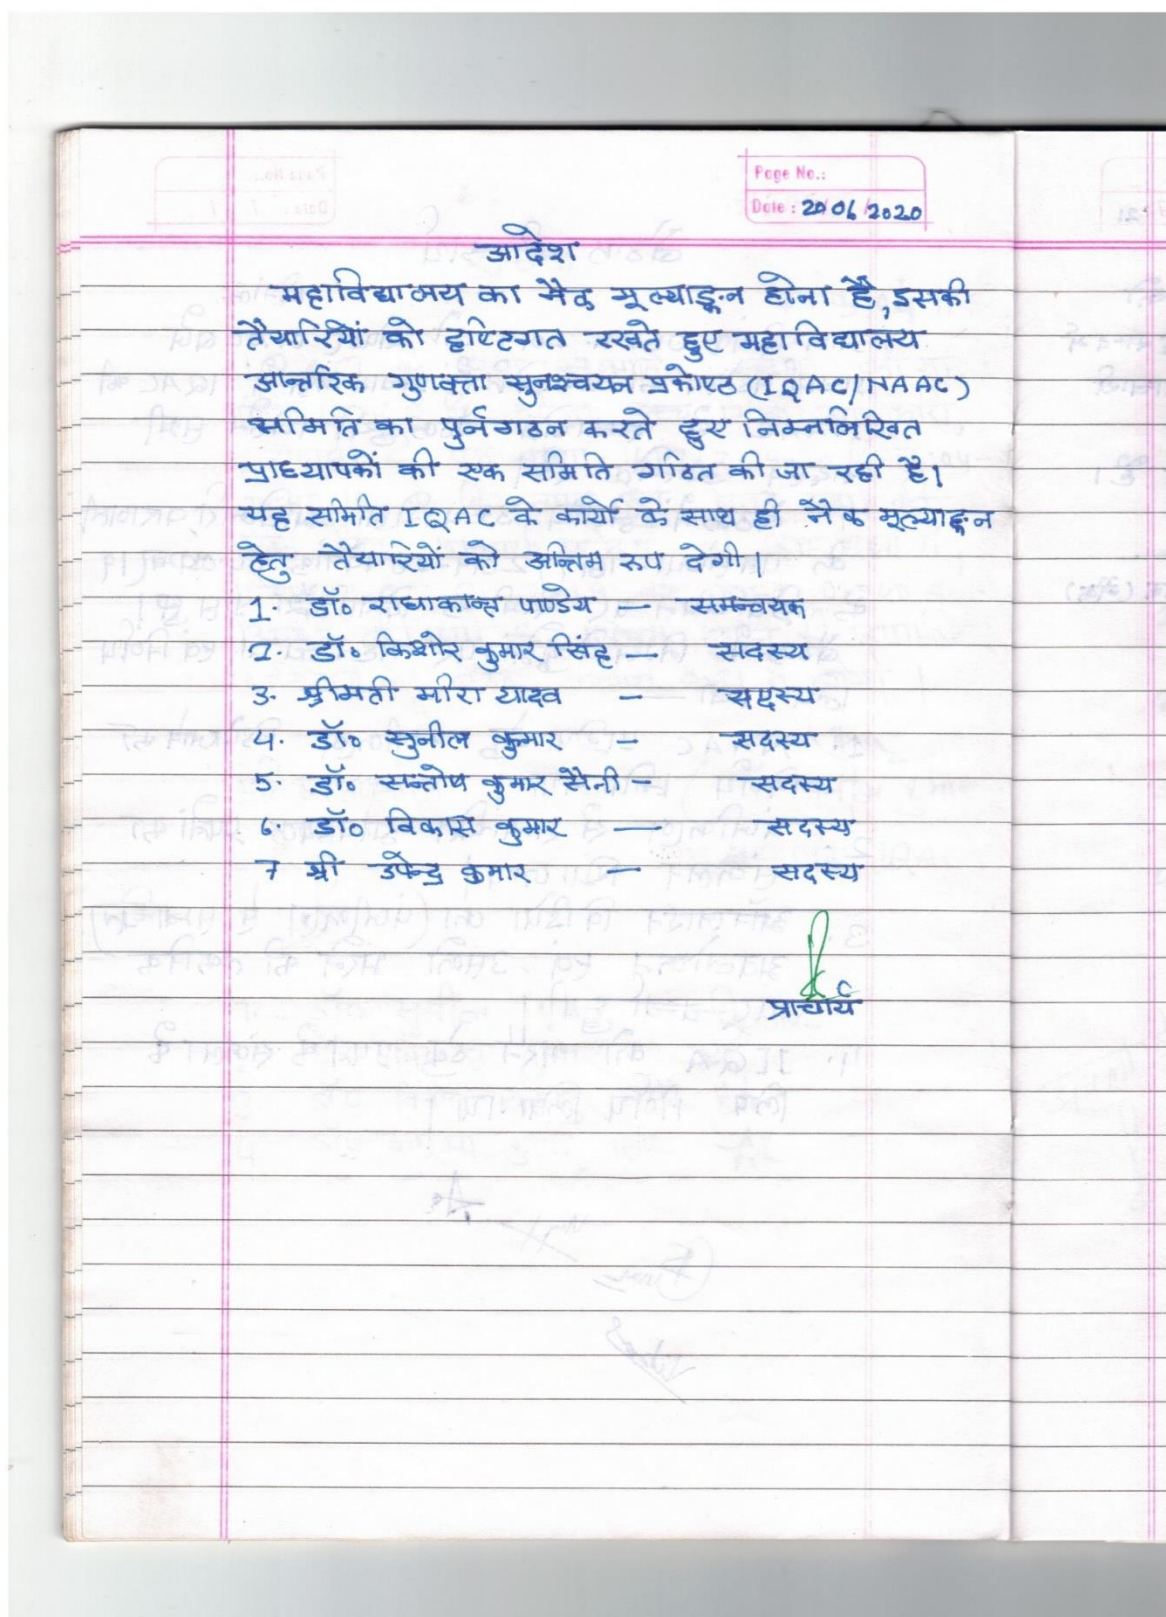 Page No.:
Date : 20/06/2020
आदेश
महाविद्यालय का नैक मूल्याङ्कन होना है, इसकी
तैयारियों को दृष्टिगत रखते हुए महाविद्यालय
आन्तरिक गुणवत्ता सुनश्चयन प्रकोष्ठ (IQAC/NAAC)
समिति का पुर्नगठन करते हुए निम्नलिखित
प्राध्यापकों की एक समिति गठित की जा रही है।
यह समिति IQAC के कार्यो के साथ ही नैक मूल्याङ्कन
हेतु तैयारियों को अन्तिम रूप देगी।
1. डॉ० राधाकान्त पाण्डेय — समन्वयक
2. डॉ० किशोर कुमार सिंह — सदस्य
3. श्रीमती मीरा यादव — सदस्य
4. डॉ० सुनील कुमार — सदस्य
5. डॉ० सन्तोष कुमार सैनी — सदस्य
6. डॉ० विकास कुमार — सदस्य
7 श्री उपेन्द्र कुमार — सदस्य
प्राचार्य